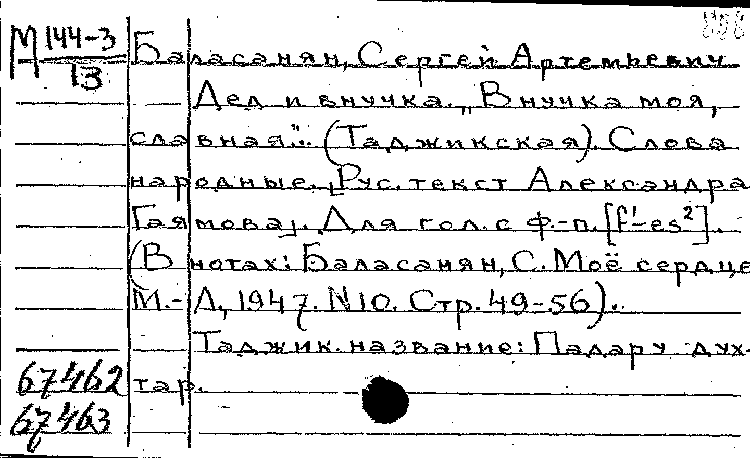 М 144-3
13
Баласанян, Сергей Артемьевич
Дед и внучка. "Внучка моя,
славная"... (Таджикская). Слова
народные. [Рус. текст Александра
Гаямова]. Для гол. с ф.-п. [f¹-es²].
(В нотах: Баласанян, С. Моё сердце
М.-Л., 1947. N10. Стр. 49-56).
Таджик. название: Падару дух-
тар.
67462
67463